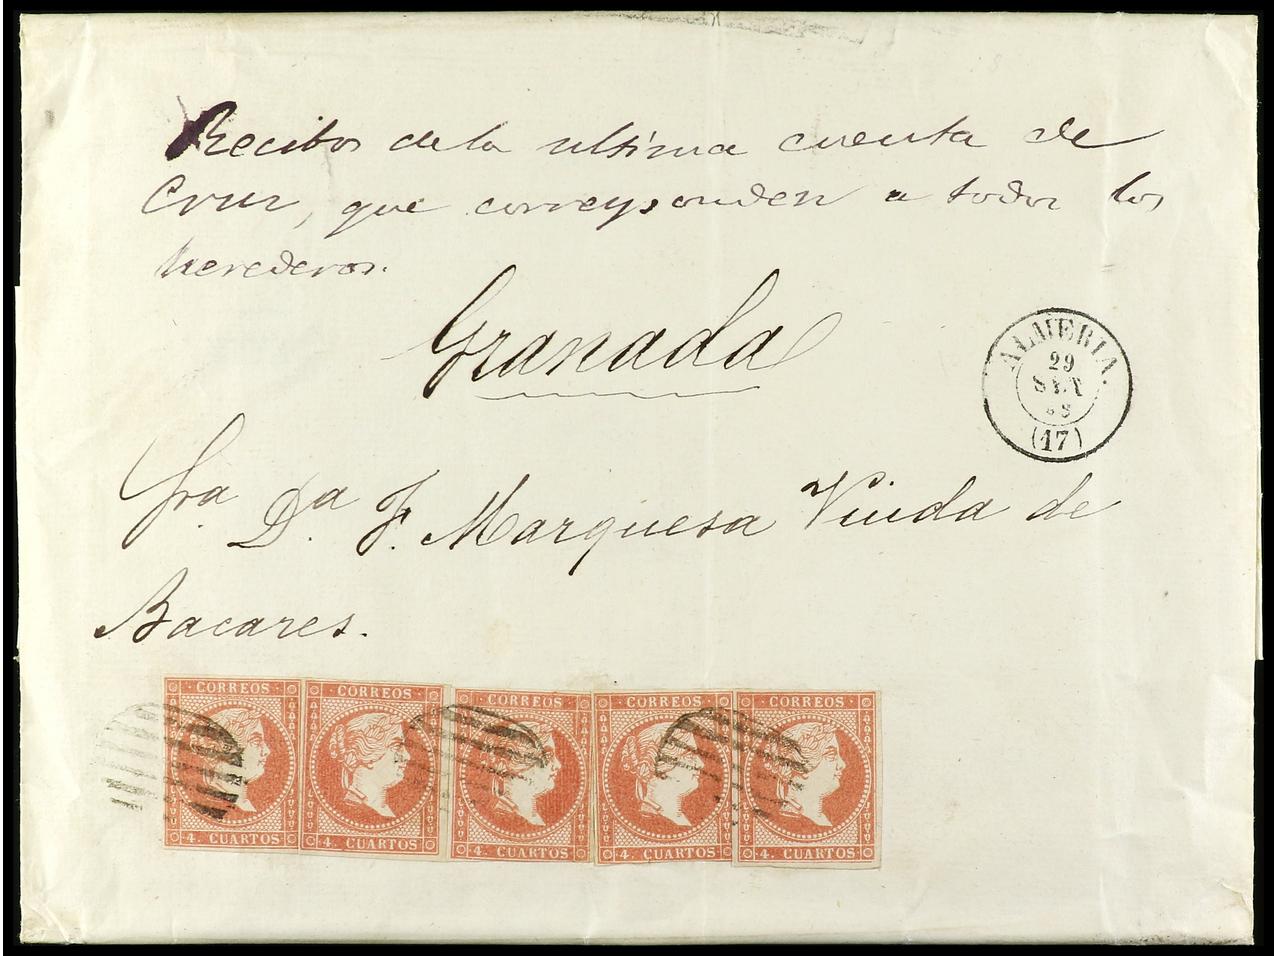 Recibos de la ultima cuenta de
Cruz, que corresponden a todos los
herederos.
Granada
ALMERIA.
29
SET
(17)
Sra. Da. F. Marquesa Viuda de
Bacares.
CORREOS CORREOS CORREOS CORREOS CORREOS
4. CUARTOS 4. CUARTOS 4. CUARTOS 4. CUARTOS 4. CUARTOS